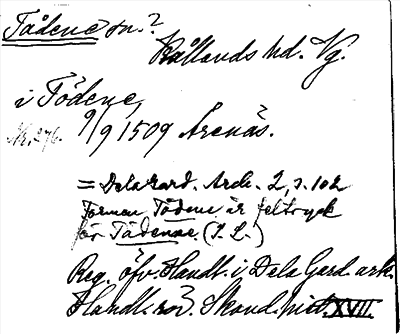 Tådene sn.?
Kållands hd. Vg.
i Tödene,
Nr. 276. 9/9 1509 Årenäs.
= Delagard. Ark. 2, s. 102
Formen Tödene är feltryck
för Tådenae. (I. L.)
Reg. öfv. Handl. i DelaGard. ark.
Handl. rör. Skand. hist. XVIII.